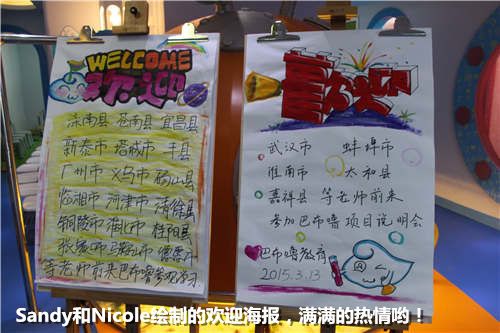 WELCOME
欢迎
滦南县 苍南县 宜昌县
新泰市 塔城市
广州市 义乌市 砀山县
临湘市 河津市 清徐县
铜陵市 淮北市 桂阳县
等老师前来巴布噜参观学习
欢迎
武汉市 蚌埠市
淮南市 太和县
嘉祥县 等老师前来
参加巴布噜项目说明会
巴布噜教育
2015.3.13
Sandy和Nicole绘制的欢迎海报，满满的热情哟！